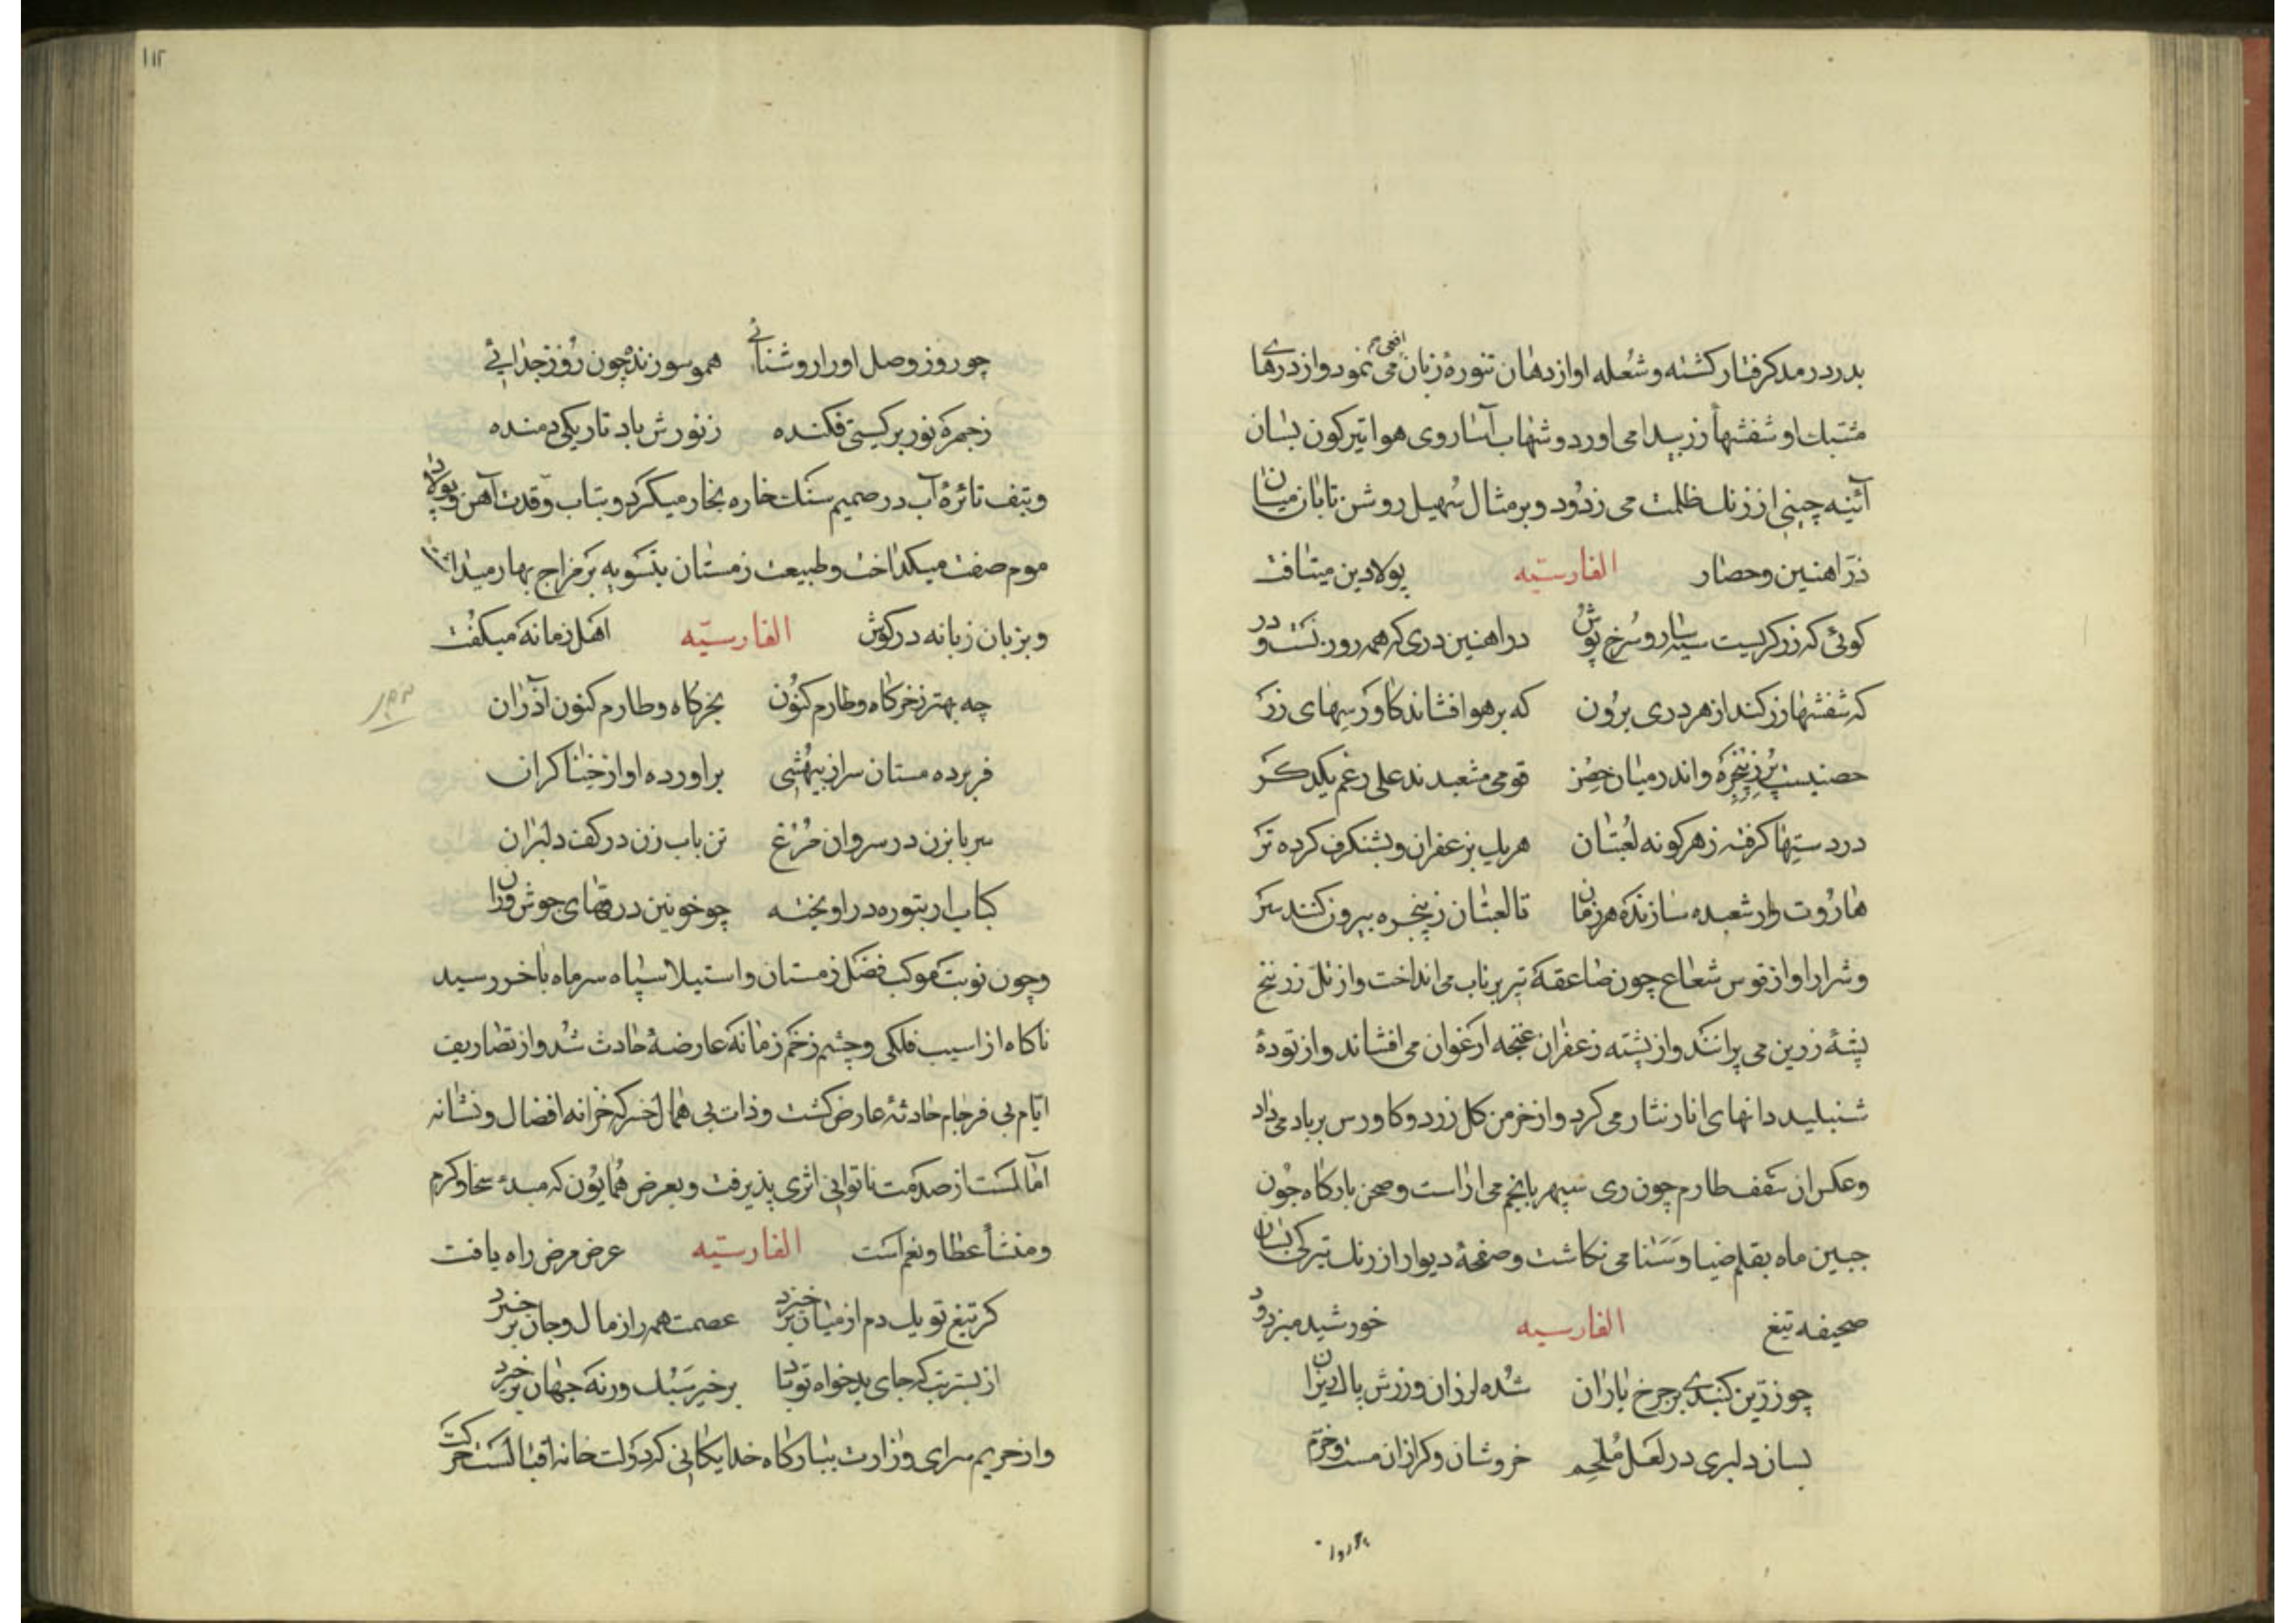 بدرد رمد کرفتار کشته و شعله او از دهان تنوره زبان افعی می نمود و از درهای
مشبک او شفشهأ زر پیدا می اورد و شهاب آسا روی هوا تیر کون بسان
آئینه چینی از زنك ظلمت می زدود و بر مثال سهیل روشن تابان میان
دَر اهنین و حصار الفارسیّه پولادین میتافت
کوئی که زرکریست سیه سار و سرخ پوش در اهنین دری که همه روزنست و در
که شفشها زر کند از هر دری برون که بر هوا فشاند کاورسهای زر
حصنیست پر ز پنجره و اندر میان حصن قومی مشعبدند علی رغم یکدکر
در دستها کرفته ز هر کونه لعبتان هر یك بزعفران و بشنکرف کرده تر
هاروت وار شعبده سازنده هر زمان تا لعبتان ز پنجره بیرون کنند سر
و شرار او از قوس شعاع چون صاعقه تیر پرتاب می انداخت و از تل زرنیخ
پشهٔ زرین می پرانند و از پشته زعفران غنچه ارغوان می افشاند و از تودهٔ
شنبلید دانهای انار نثار می کرد و از خرمن کل زرد و کاورس بر باد می داد
و عکس ان سقف طارم چون روی سپهر بانجم می اراست و صحن بارکاه چون
جبین ماه بقلم ضیا و سنا می نکاشت و صفحهٔ دیوار از زنك تیرکی بسان
صحیفه تیغ الفارسیه خورشید میزدود
چو زرین کنبدی بر چرخ یازان شده لرزان و زرش پاك ریزان
بسان دلبری در لعل ملحم خروشان و کرازان مست و خرم
چو روز و چو
۱۱۲
چو روز وصل او را روشنائی همو سوزنده چون روز جدائی
ز جمره نور بر کیتی فکنده ز نورش باد تاریکی دمنده
و بتف نائرهٔ آب در صمیم سنك خاره بخار میکرد و بتاب وقدت آهن و پولاد
موم صفت میکداخت و طبیعت زمستان بتسویه بر مزاج بهار میداشت
و بزبان زبانه در کوش الفارسیّه اهل زمانه میکفت
چه بهتر ز خرکاه و طارم کنون بخرکاه و طارم کنون آذران
فر برده مستان سر از بیهشی براورده اواز خنیاکران
سر بابزن در سر و ران مرغ تن باب زن در کف دلبران
کباب از تنوره در اویخته چو خونین درقهای جوش وران
و چون نوبت موکب فصل زمستان و استیلا سپاه سرماه باخر رسید
ناکاه از اسیب فلکی و چشم زخم زمانه عارضهٔ حادث شد و از تصاریف
ایّام بی فرجام حادثهٔ عارض کشت و ذات بی همال اخسر که خزانه افضال و نشانه
آمالست از صدمت ناتوانی اثری پذیرفت و بعرض همایون که مبدء سخا و کرم
و منشأ عطا و نعم است الفارسیّه عرض مرض راه یافت
کر تیغ تو یك دم از میان برخیزد عصمت همه را ز مال و جان برخیزد
از بستر تب که جای بدخواه تو باد برخیز سبك ورنه جهان برخیزد
و از حریم سرای وزارت ببارکاه خدایکانی که دولت خانه اقبالست حرکت